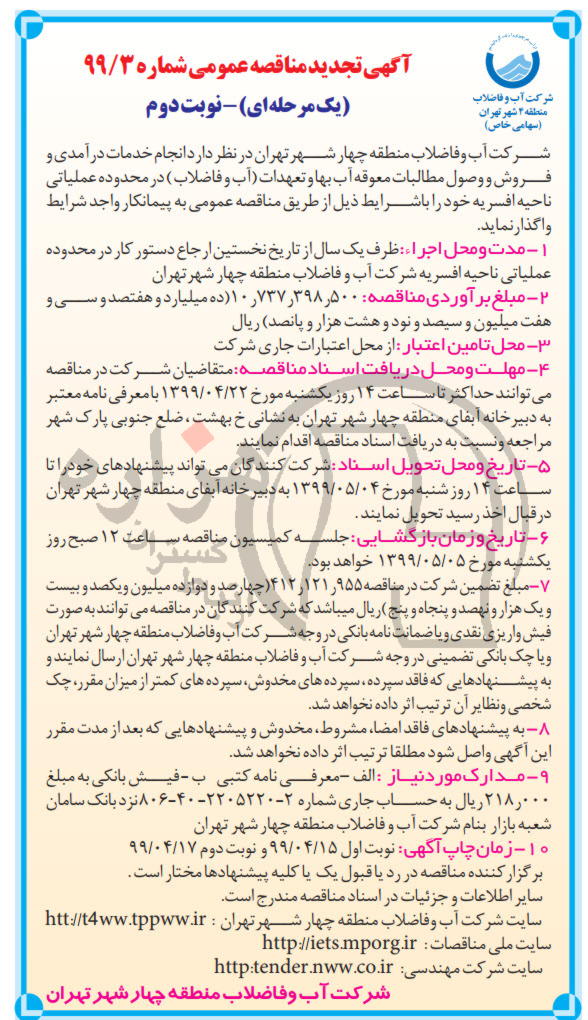 آگهی تجدید مناقصه عمومی شماره ۹۹/۳
(یک مرحله‌ای) – نوبت دوم
شرکت آب و فاضلاب
منطقه ۴ شهر تهران
(سهامی خاص)
شرکت آب وفاضلاب منطقه چهار شهر تهران در نظر دارد انجام خدمات درآمدی و
فروش و وصول مطالبات معوقه آب بها و تعهدات (آب و فاضلاب) در محدوده عملیاتی
ناحیه افسریه خود را باشرایط ذیل از طریق مناقصه عمومی به پیمانکار واجد شرایط
واگذار نماید.
۱-مدت و محل اجراء: ظرف یک سال از تاریخ نخستین ارجاع دستور کار در محدوده
عملیاتی ناحیه افسریه شرکت آب و فاضلاب منطقه چهار شهر تهران
۲-مبلغ برآوردی مناقصه: ۱۰٫۷۳۷٫۳۹۸٫۵۰۰ (ده میلیارد و هفتصد و سی و
هفت میلیون و سیصد و نود و هشت هزار و پانصد) ریال
۳-محل تامین اعتبار: از محل اعتبارات جاری شرکت
۴-مهلت و محل دریافت اسناد مناقصه: متقاضیان شرکت در مناقصه
می توانند حداکثر تا ساعت ۱۴ روز یکشنبه مورخ ۱۳۹۹/۰۴/۲۲ با معرفی نامه معتبر
به دبیرخانه آبفای منطقه چهار شهر تهران به نشانی خ بهشت، ضلع جنوبی پارک شهر
مراجعه و نسبت به دریافت اسناد مناقصه اقدام نمایند.
۵-تاریخ و محل تحویل اسناد: شرکت کنندگان می تواند پیشنهادهای خود را تا
ساعت ۱۴ روز شنبه مورخ ۱۳۹۹/۰۵/۰۴ به دبیرخانه آبفای منطقه چهار شهر تهران
در قبال اخذ رسید تحویل نمایند.
۶-تاریخ و زمان بازگشایی: جلسه کمیسیون مناقصه ساعت ۱۲ صبح روز
یکشنبه مورخ ۱۳۹۹/۰۵/۰۵ خواهد بود.
۷-مبلغ تضمین شرکت در مناقصه ۴۱۲٫۱۲۱٫۹۵۵ (چهارصد و دوازده میلیون ویکصد و بیست
و یک هزار و نهصد و پنجاه و پنج) ریال میباشد که شرکت کنندگان در مناقصه می توانند به صورت
فیش واریزی نقدی ویا ضمانت نامه بانکی در وجه شرکت آب وفاضلاب منطقه چهار شهر تهران
ویا چک بانکی تضمینی در وجه شرکت آب و فاضلاب منطقه چهار شهر تهران ارسال نمایند و
به پیشنهادهایی که فاقد سپرده، سپرده های مخدوش، سپرده های کمتر از میزان مقرر، چک
شخصی ونظایر آن ترتیب اثر داده نخواهد شد.
۸-به پیشنهادهای فاقد امضا، مشروط، مخدوش و پیشنهادهایی که بعد از مدت مقرر
این آگهی واصل شود مطلقا ترتیب اثر داده نخواهد شد.
۹-مدارک مورد نیاز: الف -معرفی نامه کتبی ب -فیش بانکی به مبلغ
۲۱۸٫۰۰۰ ریال به حساب جاری شماره ۲-۲۲۰۵۲۲۰-۴۰-۸۰۶ نزد بانک سامان
شعبه بازار بنام شرکت آب و فاضلاب منطقه چهار شهر تهران
۱۰-زمان چاپ آگهی: نوبت اول ۹۹/۰۴/۱۵ و نوبت دوم ۹۹/۰۴/۱۷
برگزار کننده مناقصه در رد یا قبول یک یا کلیه پیشنهادها مختار است.
سایر اطلاعات و جزئیات در اسناد مناقصه مندرج است.
سایت شرکت آب وفاضلاب منطقه چهار شهر تهران : htt://t4ww.tppww.ir
سایت ملی مناقصات: http://iets.mporg.ir
سایت شرکت مهندسی: http:tender.nww.co.ir
شرکت آب وفاضلاب منطقه چهار شهر تهران